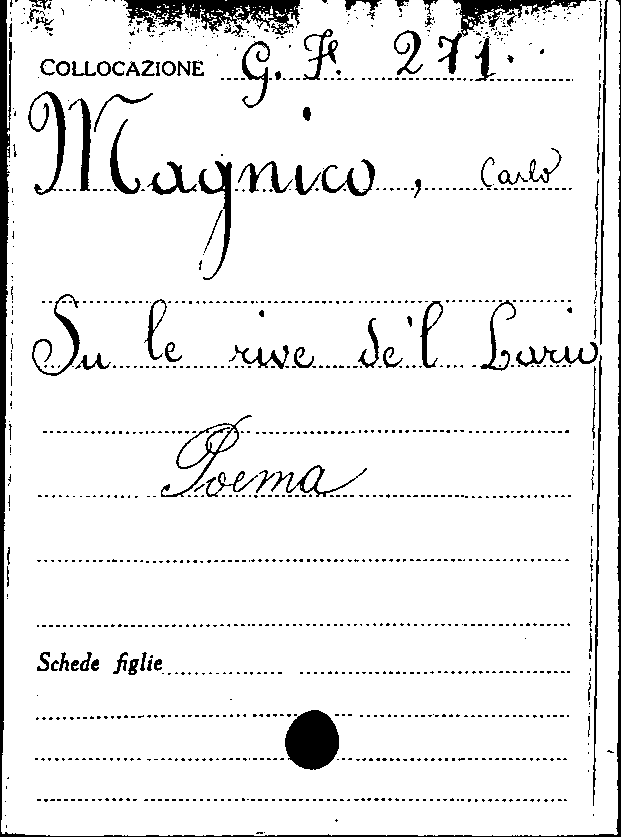 COLLOCAZIONE G. F. 271.
Magnico, Carlo
Su le rive de'l Lario
Poema
Schede figlie